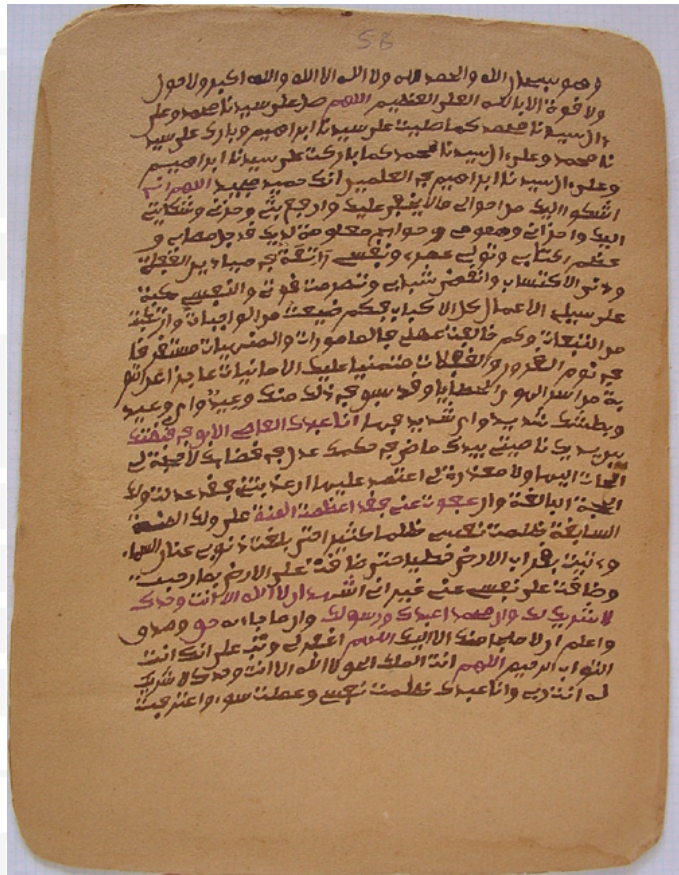 58
وهو سبحان الله والحمد لله ولا اله الا الله والله اكبر ولا حول
ولا قوة الا بالله العلي العظيم اللهم صل على سيدنا محمد وعلى
ءال سيدنا محمد كما صليت على سيدنا ابراهيم وبارك على سيد
نا محمد وعلى ءال سيدنا محمد كما باركت على سيدنا ابراهيم
وعلى ءال سيدنا ابراهيم في العلمين انك حميد مجيد اللهم اني
اشكوا اليك من احوالي ما لا يخفى عليك وارفع بثي وحزني وشكايتي
اليك واحزاني وهمومي وحوايجي معلومة لديك قد جل مصابي و
عظم اكتئابي وتولى عمري ونفسي راتعة في ميادين الغفلة
ودني الاكتساب وانقضى شبابي وتصرمت قوتي والنفس
على سيئ الاعمال فكم ضيعت من الواجبات وارتكبت
من التبعات وكم خالفت عهدك في المامورات والمنهيات مستغرقا
في نوم الغرور والغفلات متمنيا عليك الامانيات
من اسر الهوى والخطايا وقد سبق في ذلك منك وعيد واي وعيد
وبطشك شديد واي شديد فها انا عبدك العاصي الابق في قبضتك
بين يديك ناصيتي بيدك ماض في حكمك عدل في قضاؤك لا حجة لي
الجات اليها ولا معذرة لي اعتمد عليها ان عذبتني فقد عدلت ولك
الحجة البالغة وان عفوت عني فقد اعظمت المنة علي ولك المنة
السابغة ظلمت نفسي ظلما كثيرا حتى بلغت ذنوبي عنان السماء
وءتيت بقراب الارض خطيا حتى ضاقت علي الارض بما رحبت
وضاقت علي نفسي عني غير اني اشهد ان لا اله الا انت وحدك
لا شريك لك وان محمدا عبدك ورسولك وان ما جاء به حق وصدق
واعلم ان لا ملجا منك الا اليك اللهم اغفر لي وتب علي انك انت
التواب الرحيم اللهم انت الملك الحق لا اله الا انت وحدك لا شريك
له انت ربي وانا عبدك ظلمت نفسي وعملت سوءا واعترفت